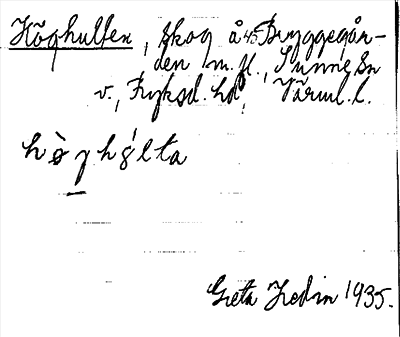 Höghulten, skog å 45 Bryggegår-
den m. fl., Sunne Sn
v., Fryksd. hd, Värml. l.
hø̀ɡhǿlta
Greta Hedin 1935.